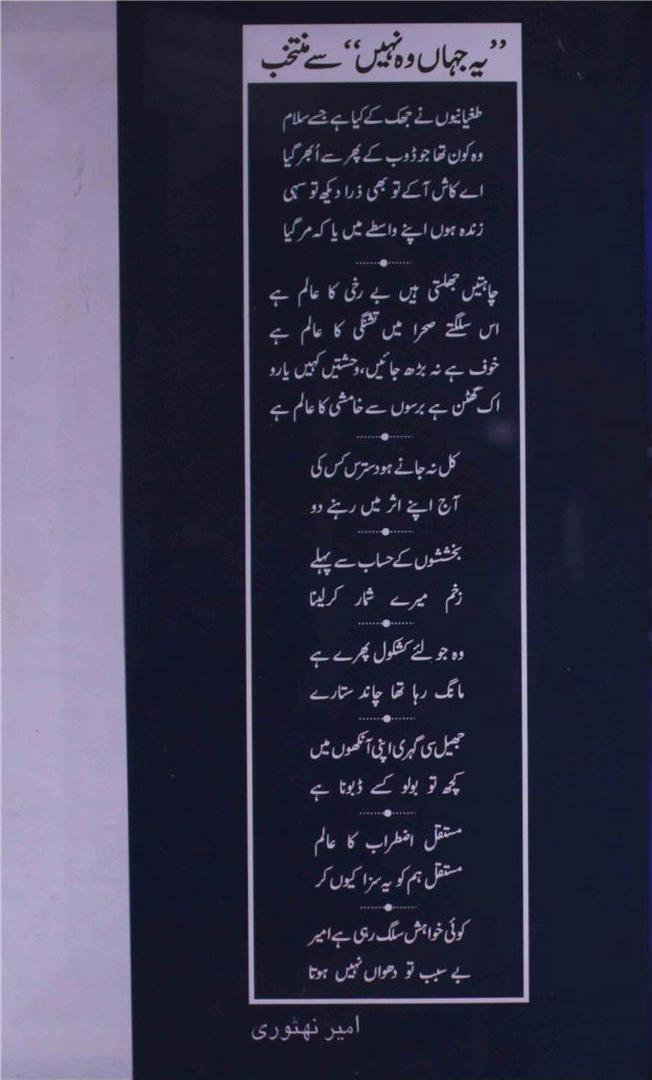 ”یہ جہاں وہ نہیں“ سے منتخب
طغیانیوں نے جھک کے کیا ہے جسے سلام
وہ کون تھا جو ڈوب کے پھر سے اُبھر گیا
اے کاش آکے تو بھی ذرا دیکھ تو سہی
زندہ ہوں اپنے واسطے میں یا کہ مر گیا
چاہتیں جھلستی ہیں بے رخی کا عالم ہے
اس سلگتے صحرا میں تشنگی کا عالم ہے
خوف ہے نہ بڑھ جائیں، وحشتیں کہیں یارو
اک گھٹن ہے برسوں سے خامشی کا عالم ہے
کل نہ جانے ہو دسترس کس کی
آج اپنے اثر میں رہنے دو
بخششوں کے حساب سے پہلے
زخم میرے شمار کرلینا
وہ جو لئے کشکول پھرے ہے
مانگ رہا تھا چاند ستارے
جھیل سی گہری اپنی آنکھوں میں
کچھ تو بولو کسے ڈبونا ہے
مستقل اضطراب کا عالم
مستقل ہم کو یہ سزا کیوں کر
کوئی خواہش سلگ رہی ہے امیر
بے سبب تو دھواں نہیں ہوتا
امیر نہٹوری